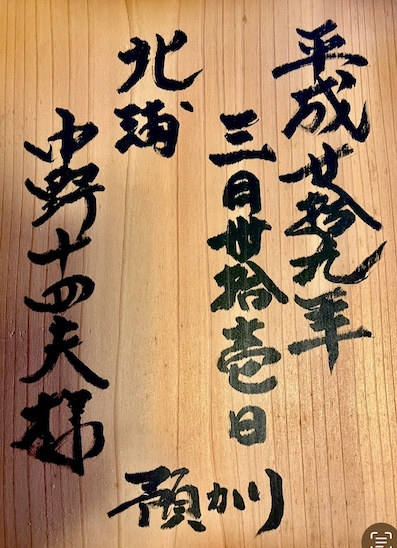 平成廿拾九年
三月卅拾壱日
北浦
中野十四夫様
預かり